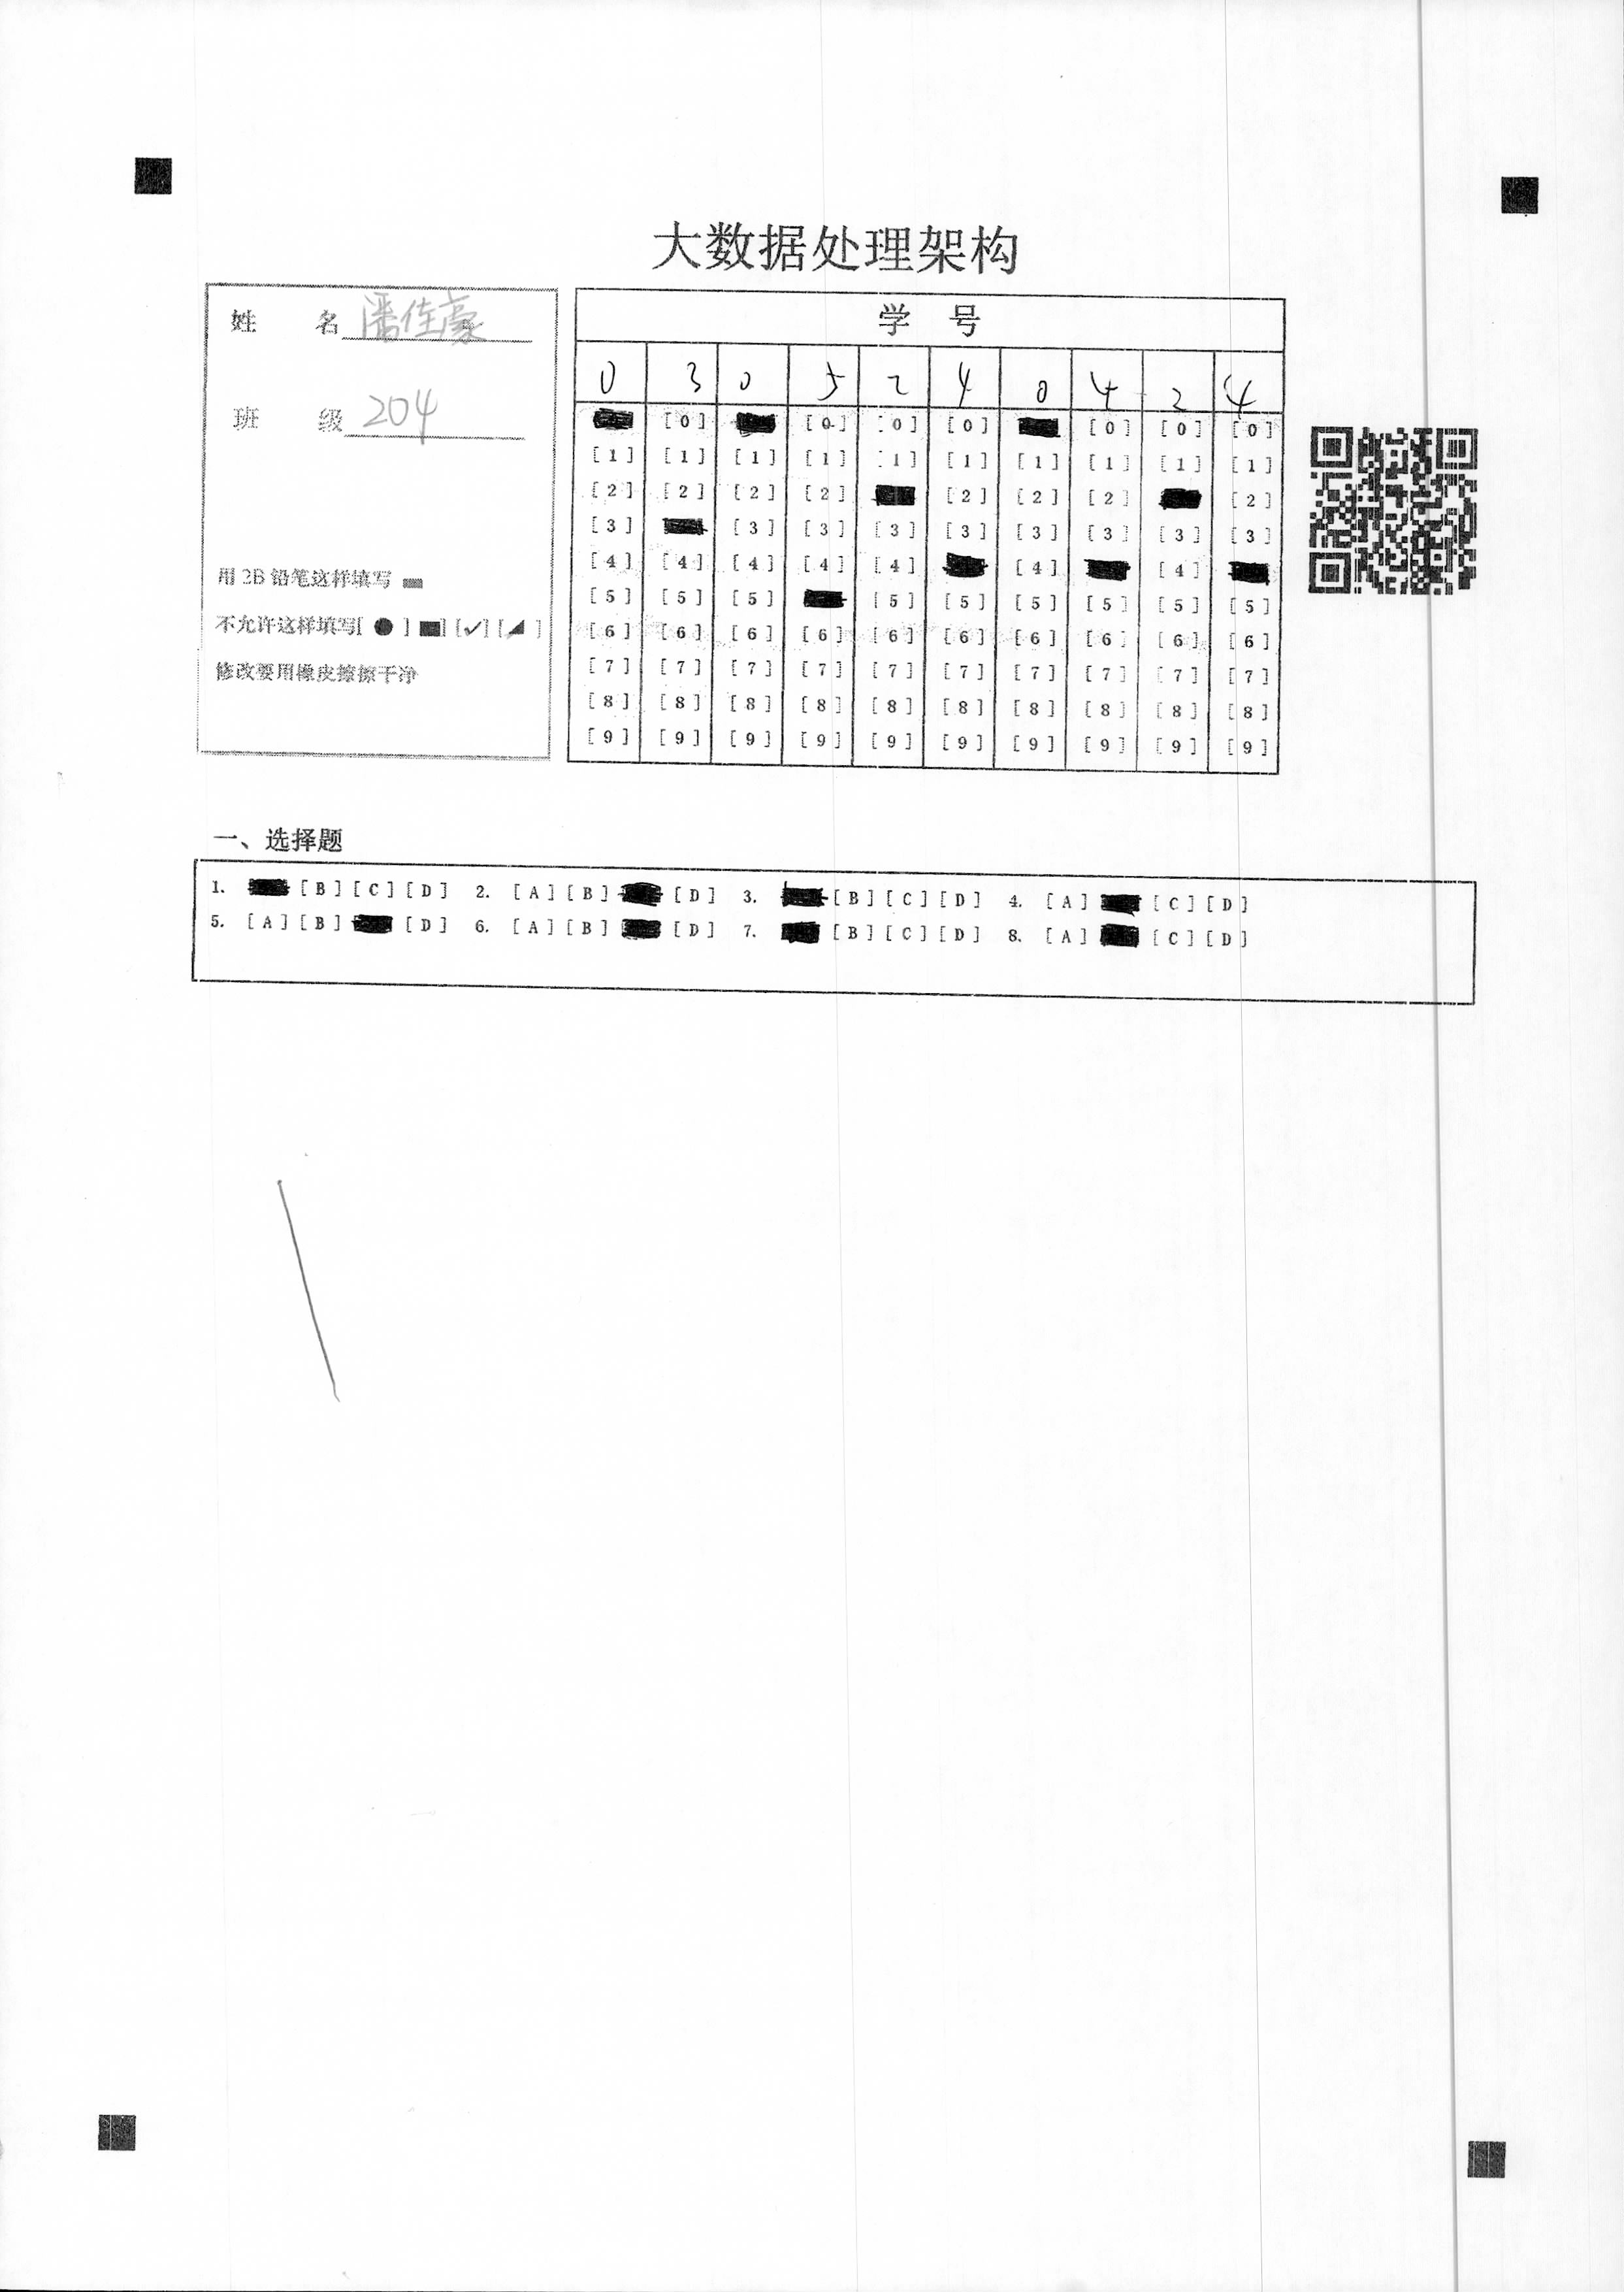 大数据处理架构
姓 名 潘佳豪
班 级 204
用 2B 铅笔这样填写
不允许这样填写[ ● ] [ ✓ ] [ ]
修改要用橡皮擦擦干净
学 号
0 3 0 5 2 4 0 4 2 4
[0] [0] [0] [0] [0] [0] [0]
[1] [1] [1] [1] [1] [1] [1] [1] [1] [1]
[2] [2] [2] [2] [2] [2] [2] [2]
[3] [3] [3] [3] [3] [3] [3] [3] [3]
[4] [4] [4] [4] [4] [4] [4]
[5] [5] [5] [5] [5] [5] [5] [5] [5]
[6] [6] [6] [6] [6] [6] [6] [6] [6] [6]
[7] [7] [7] [7] [7] [7] [7] [7] [7] [7]
[8] [8] [8] [8] [8] [8] [8] [8] [8] [8]
[9] [9] [9] [9] [9] [9] [9] [9] [9] [9]
一、选择题
1. [B] [C] [D] 2. [A] [B] [D] 3. [B] [C] [D] 4. [A] [C] [D]
5. [A] [B] [D] 6. [A] [B] [D] 7. [B] [C] [D] 8. [A] [C] [D]